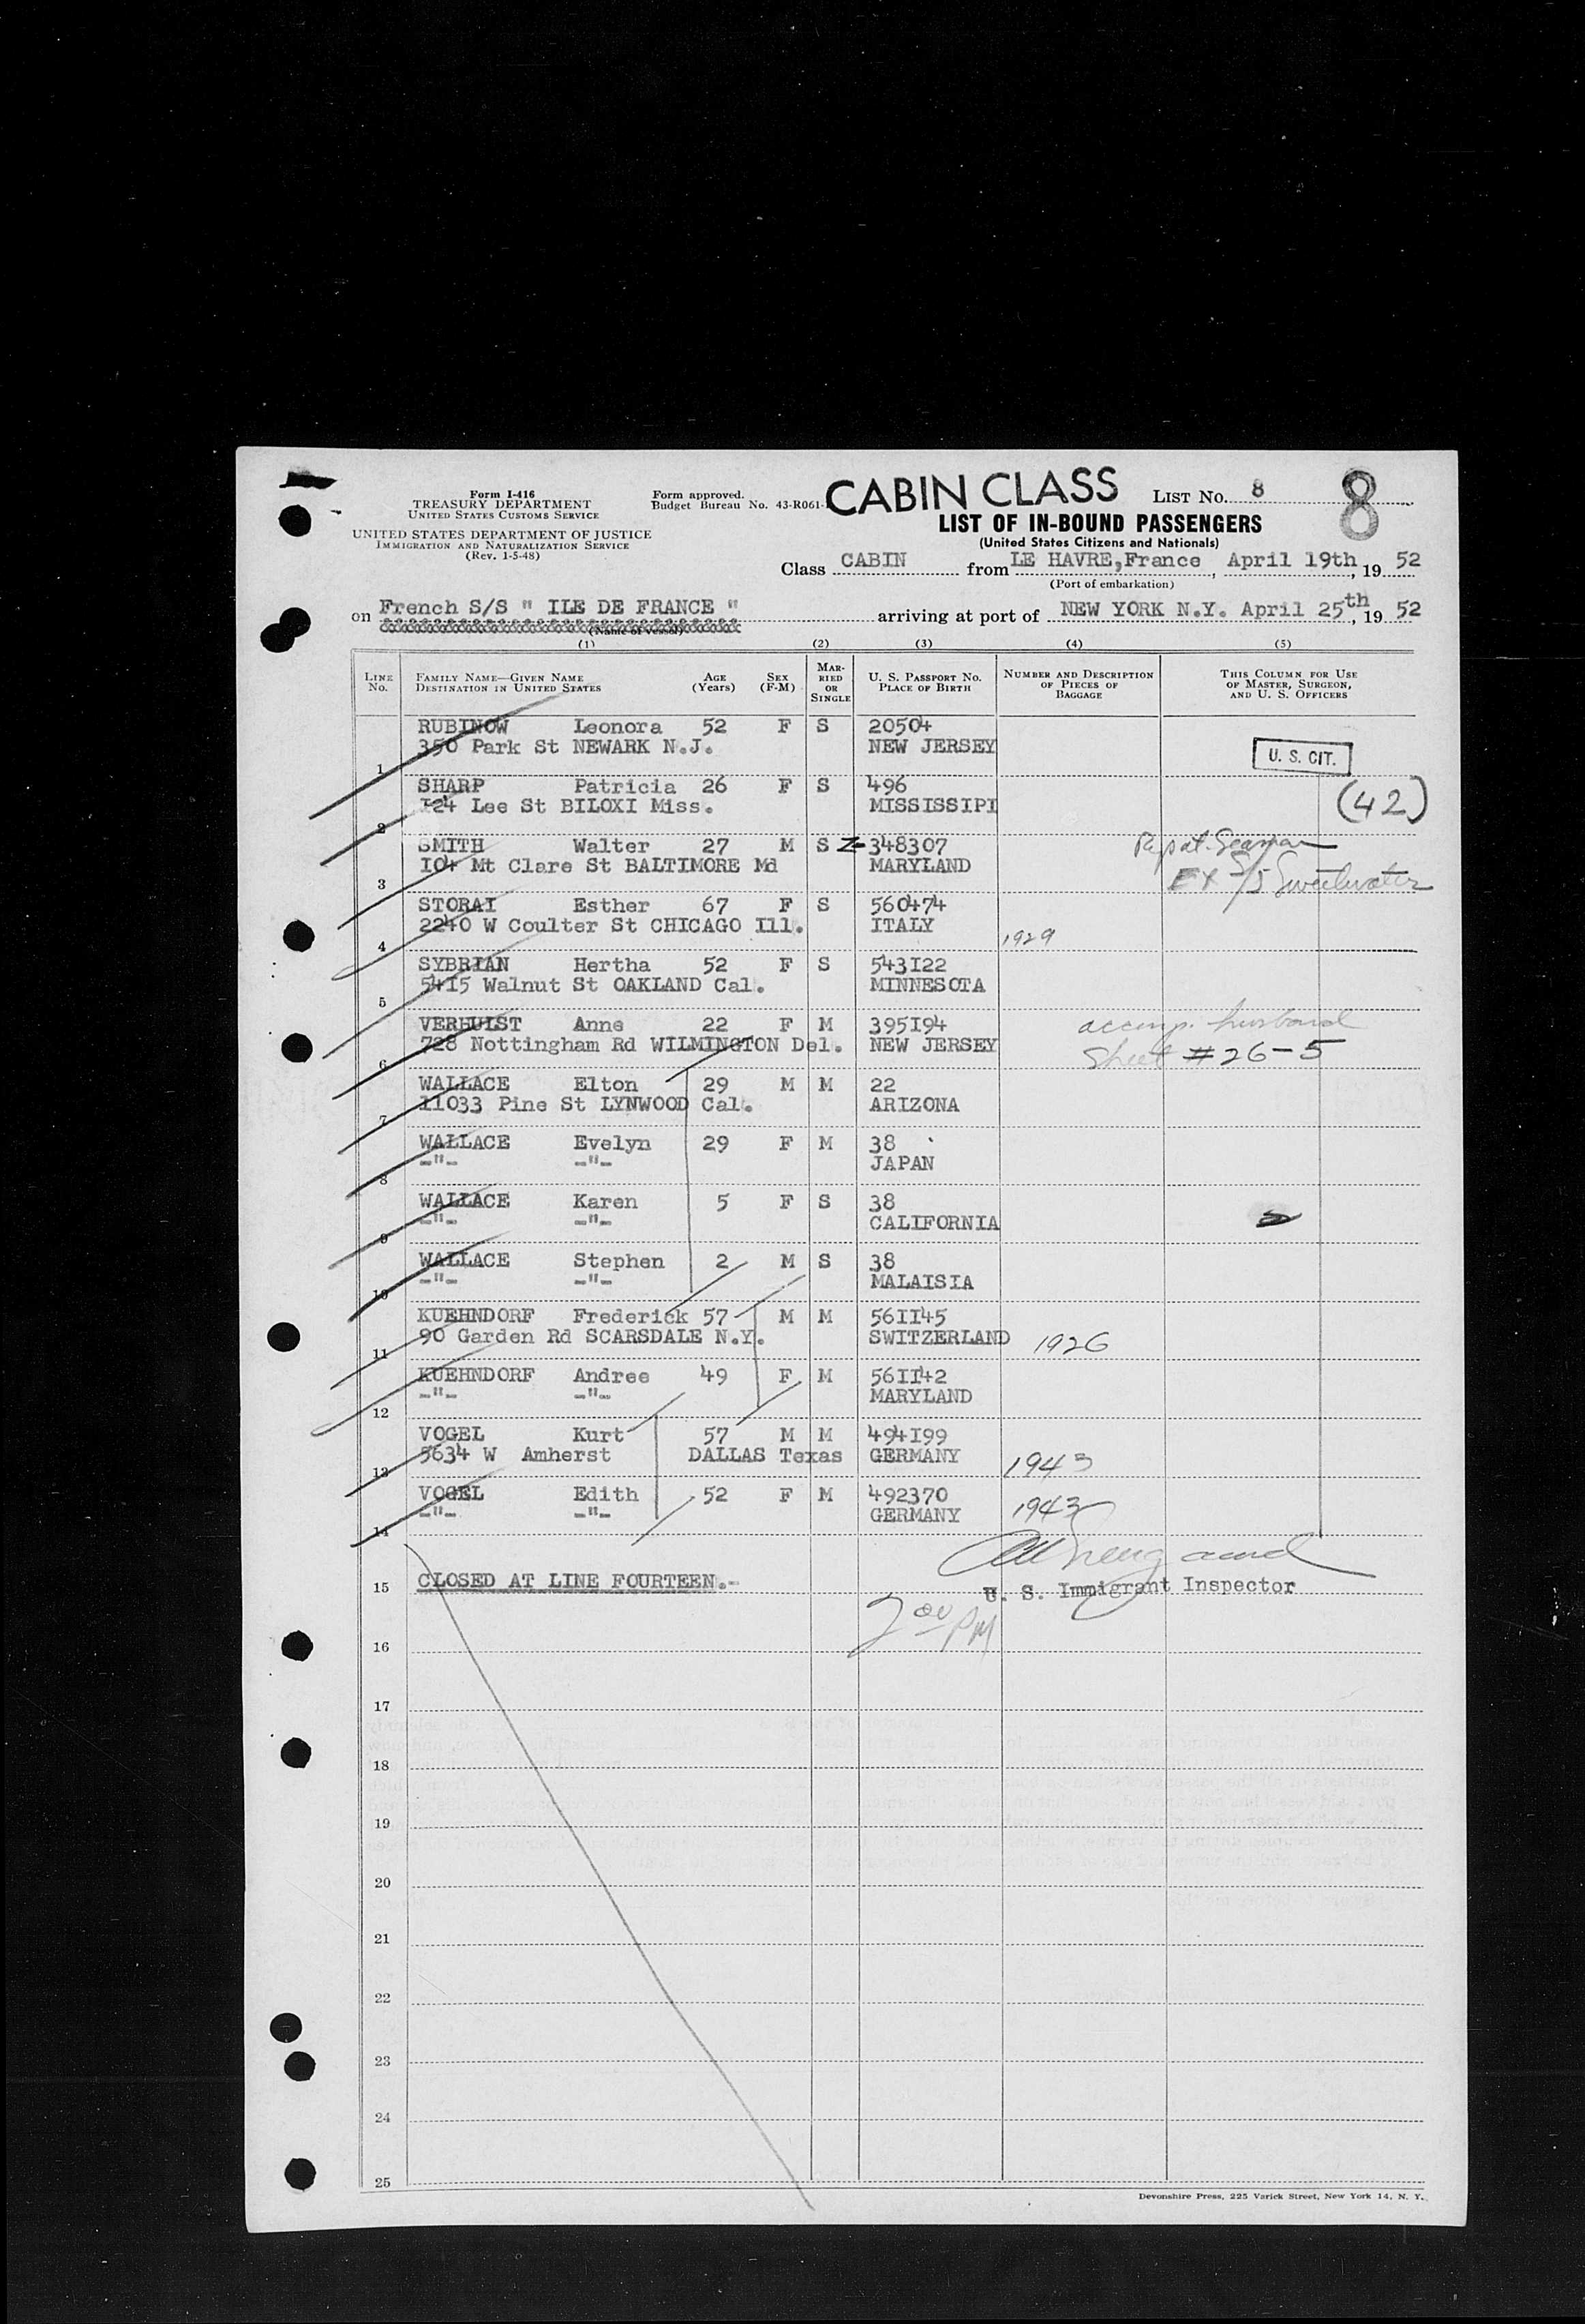 Form I-416
TREASURY DEPARTMENT
UNITED STATES CUSTOMS SERVICE
UNITED STATES DEPARTMENT OF JUSTICE
IMMIGRATION AND NATURALIZATION SERVICE
(Rev. 1-5-48)
Form approved.
Budget Bureau No. 43-R061-
CABIN CLASS
LIST No. 8
8
LIST OF IN-BOUND PASSENGERS
(United States Citizens and Nationals)
Class CABIN from LE HAVRE,France, April 19th, 19 52
(Port of embarkation)
on French S/S " ILE DE FRANCE " arriving at port of NEW YORK N.Y. April 25th, 19 52
(Name of vessel)
(1) (2) (3) (4) (5)
LINE No.
FAMILY NAME—GIVEN NAME
DESTINATION IN UNITED STATES
AGE (Years)
SEX (F-M)
MAR-RIED OR SINGLE
U. S. PASSPORT NO.
PLACE OF BIRTH
NUMBER AND DESCRIPTION OF PIECES OF BAGGAGE
THIS COLUMN FOR USE OF MASTER, SURGEON, AND U. S. OFFICERS
RUBINOW Leonora 52 F S 20504
1 350 Park St NEWARK N.J. NEW JERSEY U. S. CIT.
SHARP Patricia 26 F S 496
2 I24 Lee St BILOXI Miss. MISSISSIPI (42)
SMITH Walter 27 M S Z-348307
3 I04 Mt Clare St BALTIMORE Md MARYLAND Ex S/S Sweetwater
STORAI Esther 67 F S 560474
4 2240 W Coulter St CHICAGO Ill. ITALY 1929
SYBRIAN Hertha 52 F S 543I22
5 54I5 Walnut St OAKLAND Cal. MINNESOTA
VERHULST Anne 22 F M 395I94 accomp. husband
6 728 Nottingham Rd WILMINGTON Del. NEW JERSEY Sheet #26-5
WALLACE Elton 29 M M 22
7 11033 Pine St LYNWOOD Cal. ARIZONA
WALLACE Evelyn 29 F M 38
8 -"- -"- JAPAN
WALLACE Karen 5 F S 38
9 -"- -"- CALIFORNIA
WALLACE Stephen 2 M S 38
10 -"- -"- MALAISIA
KUEHNDORF Frederick 57 M M 56II45
11 90 Garden Rd SCARSDALE N.Y. SWITZERLAND 1926
KUEHNDORF Andree 49 F M 56II42
12 -"- -"- MARYLAND
VOGEL Kurt 57 M M 494I99
13 5634 W Amherst DALLAS Texas GERMANY 1943
VOGEL Edith 52 F M 492370
14 -"- -"- GERMANY 1943
15 CLOSED AT LINE FOURTEEN.- U. S. Immigrant Inspector
16
17
18
19
20
21
22
23
24
25
Devonshire Press, 225 Varick Street, New York 14, N. Y.